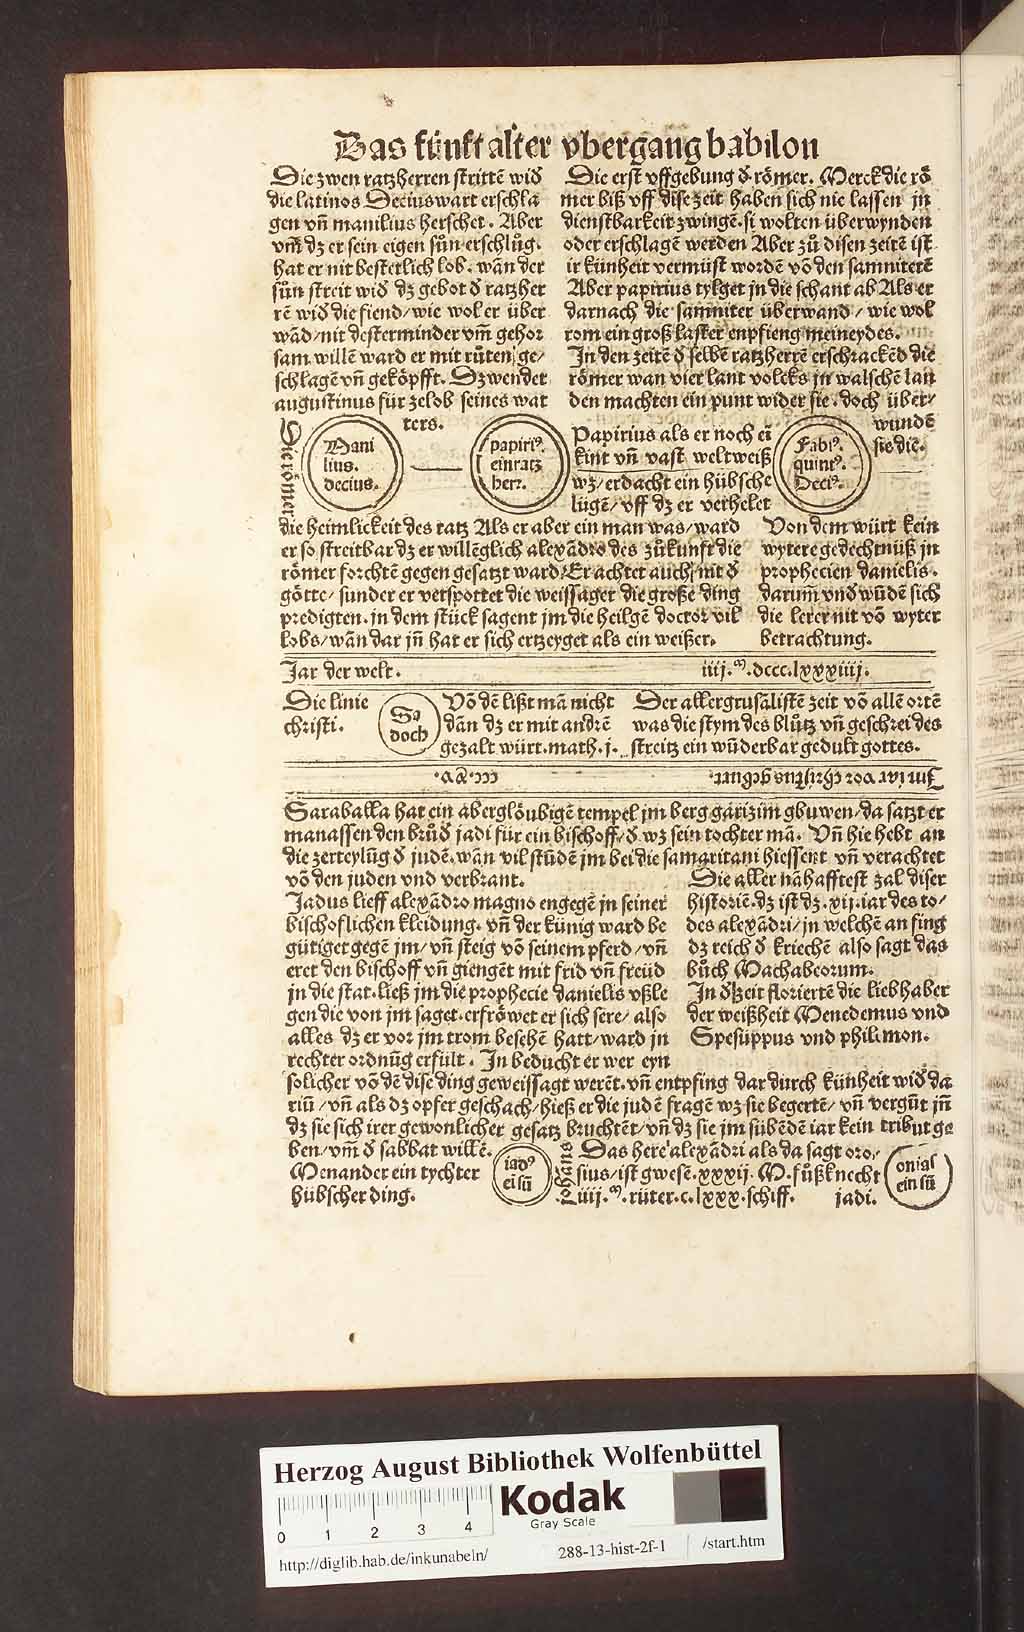 Das fünft alter vbergang babilon
Die zwen ratzherren strittē wid̄
die latinos Decius wart erschla
gen vn̄ manilius herschet. Aber
vm̄ dz er sein eigen sůn erschlůg.
hat er nit besterlich lob. wān der
sůn streit wid̄ dz gebot d̄ ratzher
rē wid̄ die fiend/wie wol er über
wād/nit desterminder vm̄ gehor
sam willē ward er mit růten ge/
schlagē vn̄ geköpfft. Dz wender
augustinus für ze lob seines wat
ters.
Die erst vffgebung d̄ römer. Merck die rö
mer biß vff dise zeit haben sich nie lassen in
dienstbarkeit zwingē. si wolten überwynden
oder erschlagē werden Aber zů disen zeitē ist
ir künheit vermüst wordē vō den samniterē
Aber papirius tylget jn die schant ab Als er
darnach die samniter überwand/wie wol
rom ein groß laster enpfieng meineydes.
In den zeitē d̄ selbē ratzherrē erschrackēd die
römer wan vier lant volcks jn walschē lan
den machten ein punt wider sie. doch über/
wundē
sie die.
Die römer
Mani
lius.
decius.
papiriꝰ.
ein ratz
herr.
Papirius als er noch eī
kint vn̄ vast weltweiß
wz/erdacht ein hübsche
lügē/vff dz er verhelet
Fabiꝰ.
quintꝰ.
Deciꝰ.
die heimlickeit des ratz Als er aber ein man was/ward
er so streitbar dz er willēglich alexādro des zůkunft die
römer forchtē gegen gesatzt ward/Er achtet auch nit d̄
götte/sunder er verspottet die weissager die große ding
predigten. in dem stück sagent jm die heilgē doctor vil
lobs/wān dar jn̄ hat er sich ertzeyget als ein weißer.
Von dem würt kein
wytere gedechtnüß jn
prophecien danielis.
darum̄ vnd wūdē sich
die lerer nit vō wyter
betrachtung.
Jar der welt.
iiij.ᵐ.dcccc.lxxxiiij.
Die linie
christi.
Sa
doch
Vō dē lißt mā nicht
dān dz er mit andrē
gezalt würt. math. j.
Der allergrusālistē zeit vō allē ortē
was die stym des blůtz vn̄ geschrei des
streitz ein wūderbar gedult gottes.
Jm iar vor christus geburt.
ccc.xv.
Saraballa hat ein aberglöubigē tempel jm berg garizim gbuwen/da satzt er
manassen den brůd̄ jadi für ein bischoff/d̄ wz sein tochter mā. Vn̄ hie hebt an
die zerteylūg d̄ judē. wān vil stūdē jm bei die samaritani hiessent vn̄ verachtet
vō den juden vnd verbrant.
Jadus lieff alexādro magno engegē jn seiner
bischoflichen kleidung. vn̄ der künig ward be
gütiget gegē jm/vn̄ steig vō seinem pferd/vn̄
eret den bischoff vn̄ giengēt mit frid vn̄ freüd
jn die stat. ließ jm die prophecie danielis vßle
gen die von jm saget. erfröwet er sich sere/also
alles dz er vor jm trom besehē hatt/ward jn
rechter ordnūg erfült. Jn beducht er wer eyn
Die aller nāhafftest zal diser
historiē. dz ist dz .xij. iar des to/
des alexādri/jn welchē an fing
dz reich d̄ kriechē also sagt das
bůch Machabeorum.
In d̄ zeit floriertē die liebhaber
der weißheit Menedemus vnd
Spesuppus vnd philimon.
solicher vō dē dise ding geweissagt werēt. vn̄ entpfing dar durch künheit wid̄ da
riū/vn̄ als dz opfer geschach/hieß er die judē fragē wz sie begertē/vn̄ vergūt jn̄
dz sie sich irer gewonlicher gesatz bruchtēt/vn̄ dz sie jm sübēdē iar kein tribut ge
ben/vm̄ d̄ sabbat willē.
Menander ein tychter
hübscher ding.
iadꝰ
ei sū
Johans
Das here alexādri als da sagt oro/
sius/ist gwese .xxxij. M. fůßknecht
.iiij.ᵐ. rüter .c.lxxx. schiff.
jadi.
onias
ein sū
Herzog August Bibliothek Wolfenbüttel
0 1 2 3 4
Kodak
Gray Scale
http://diglib.hab.de/inkunabeln/
288-13-hist-2f-1
/start.htm